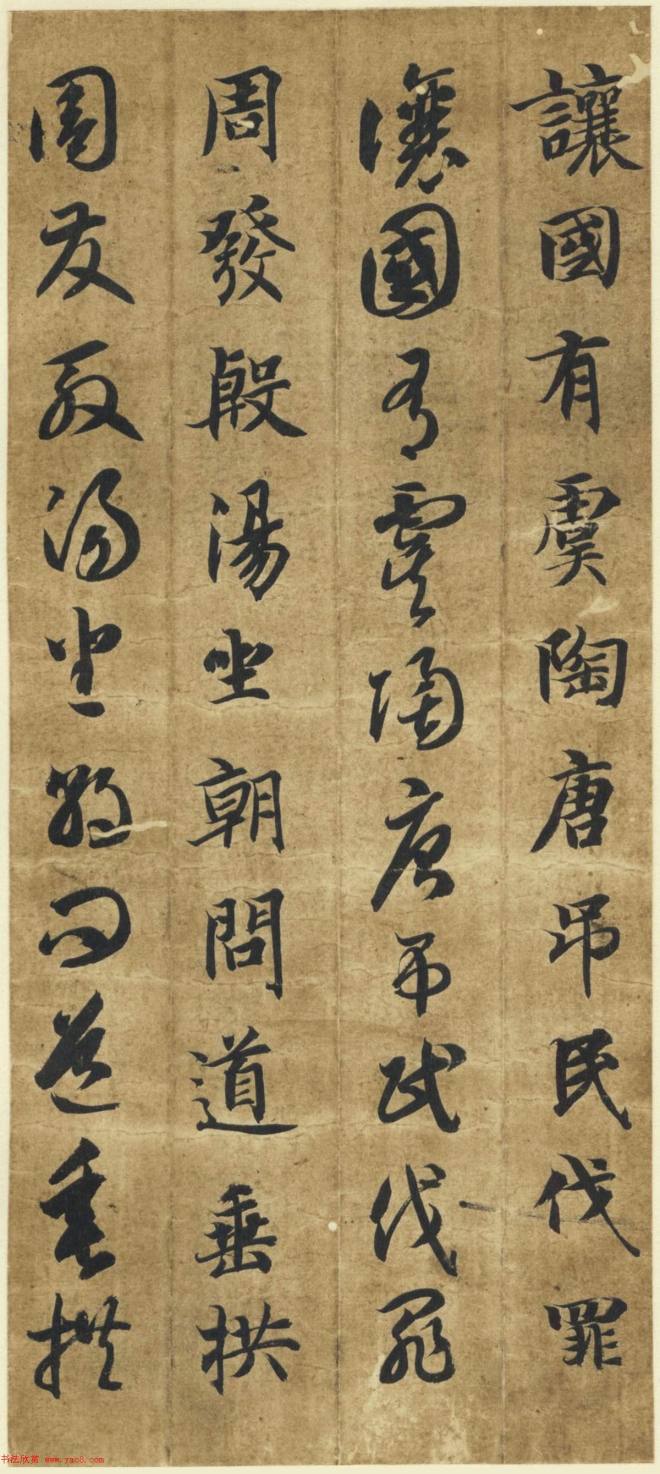 讓國有虞陶唐吊民伐罪
讓國有虞陶唐吊民伐罪
周發殷湯坐朝問道垂拱
周發殷湯坐朝問道垂拱
书法欣赏 www.yac8.com